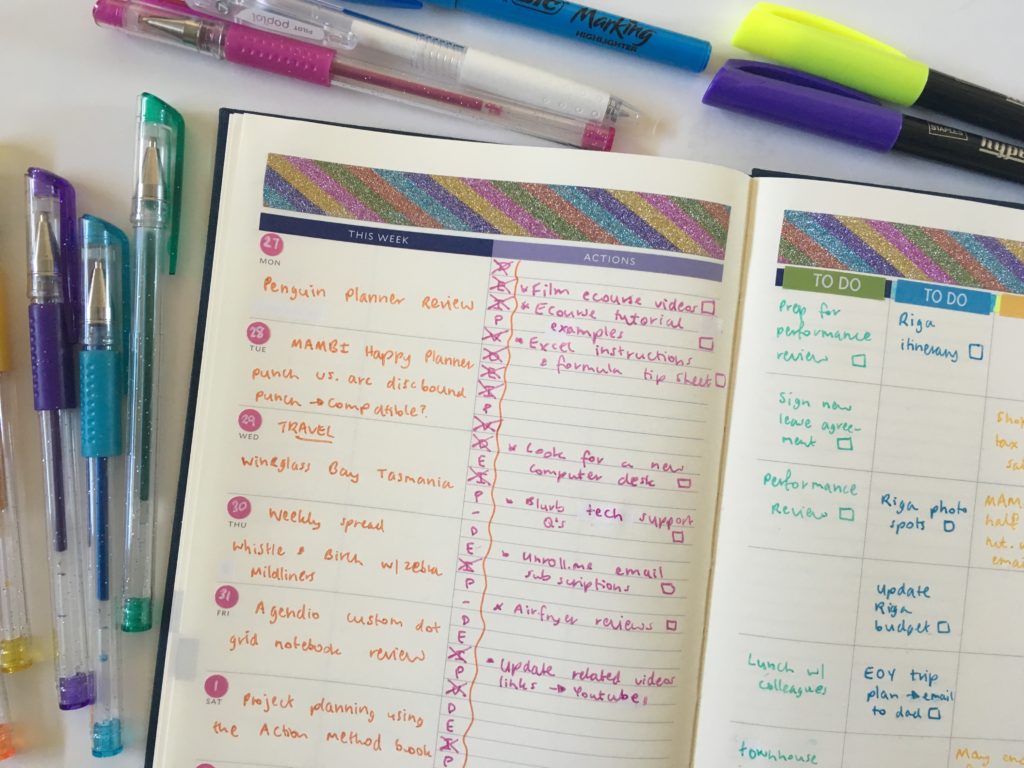 PILOT poplol
BIC Marking
HIGHLIGHTER
STAPLES
hype
THIS WEEK
27
MON
Penguin Planner Review
28
TUE
MAMBI Happy Planner
punch vs. arc discbound
punch → compatible?
29
WED
TRAVEL
Wineglass Bay Tasmania
30
THU
Weekly spread
Whistle & Birch w/ zebra
Mildliners
31
FRI
Agendio custom dot
grid notebook review
1
SAT
Project planning using
the Action Method book
ACTIONS
* Film ecourse videos
* Ecourse tutorial
examples
* Excel instructions
& formula tip sheet
* Look for a new
computer desk
* Blurb tech support
Q's
* Unroll.me email
subscriptions
* Airfryer reviews
* Update related videos
links → Youtube
P
P
E
P
-
D
E
P
-
D
E
P
D
E
P
TO DO
Prep for
performance
review
Sign new
leave agree-
ment
Performance
Review
Lunch w/
colleagues
townhouse
TO DO
Riga
itinerary
Riga photo
spots
Update
Riga
budget
EOY trip
plan → email
to dad
Shop
tax
MAM
half
email
May